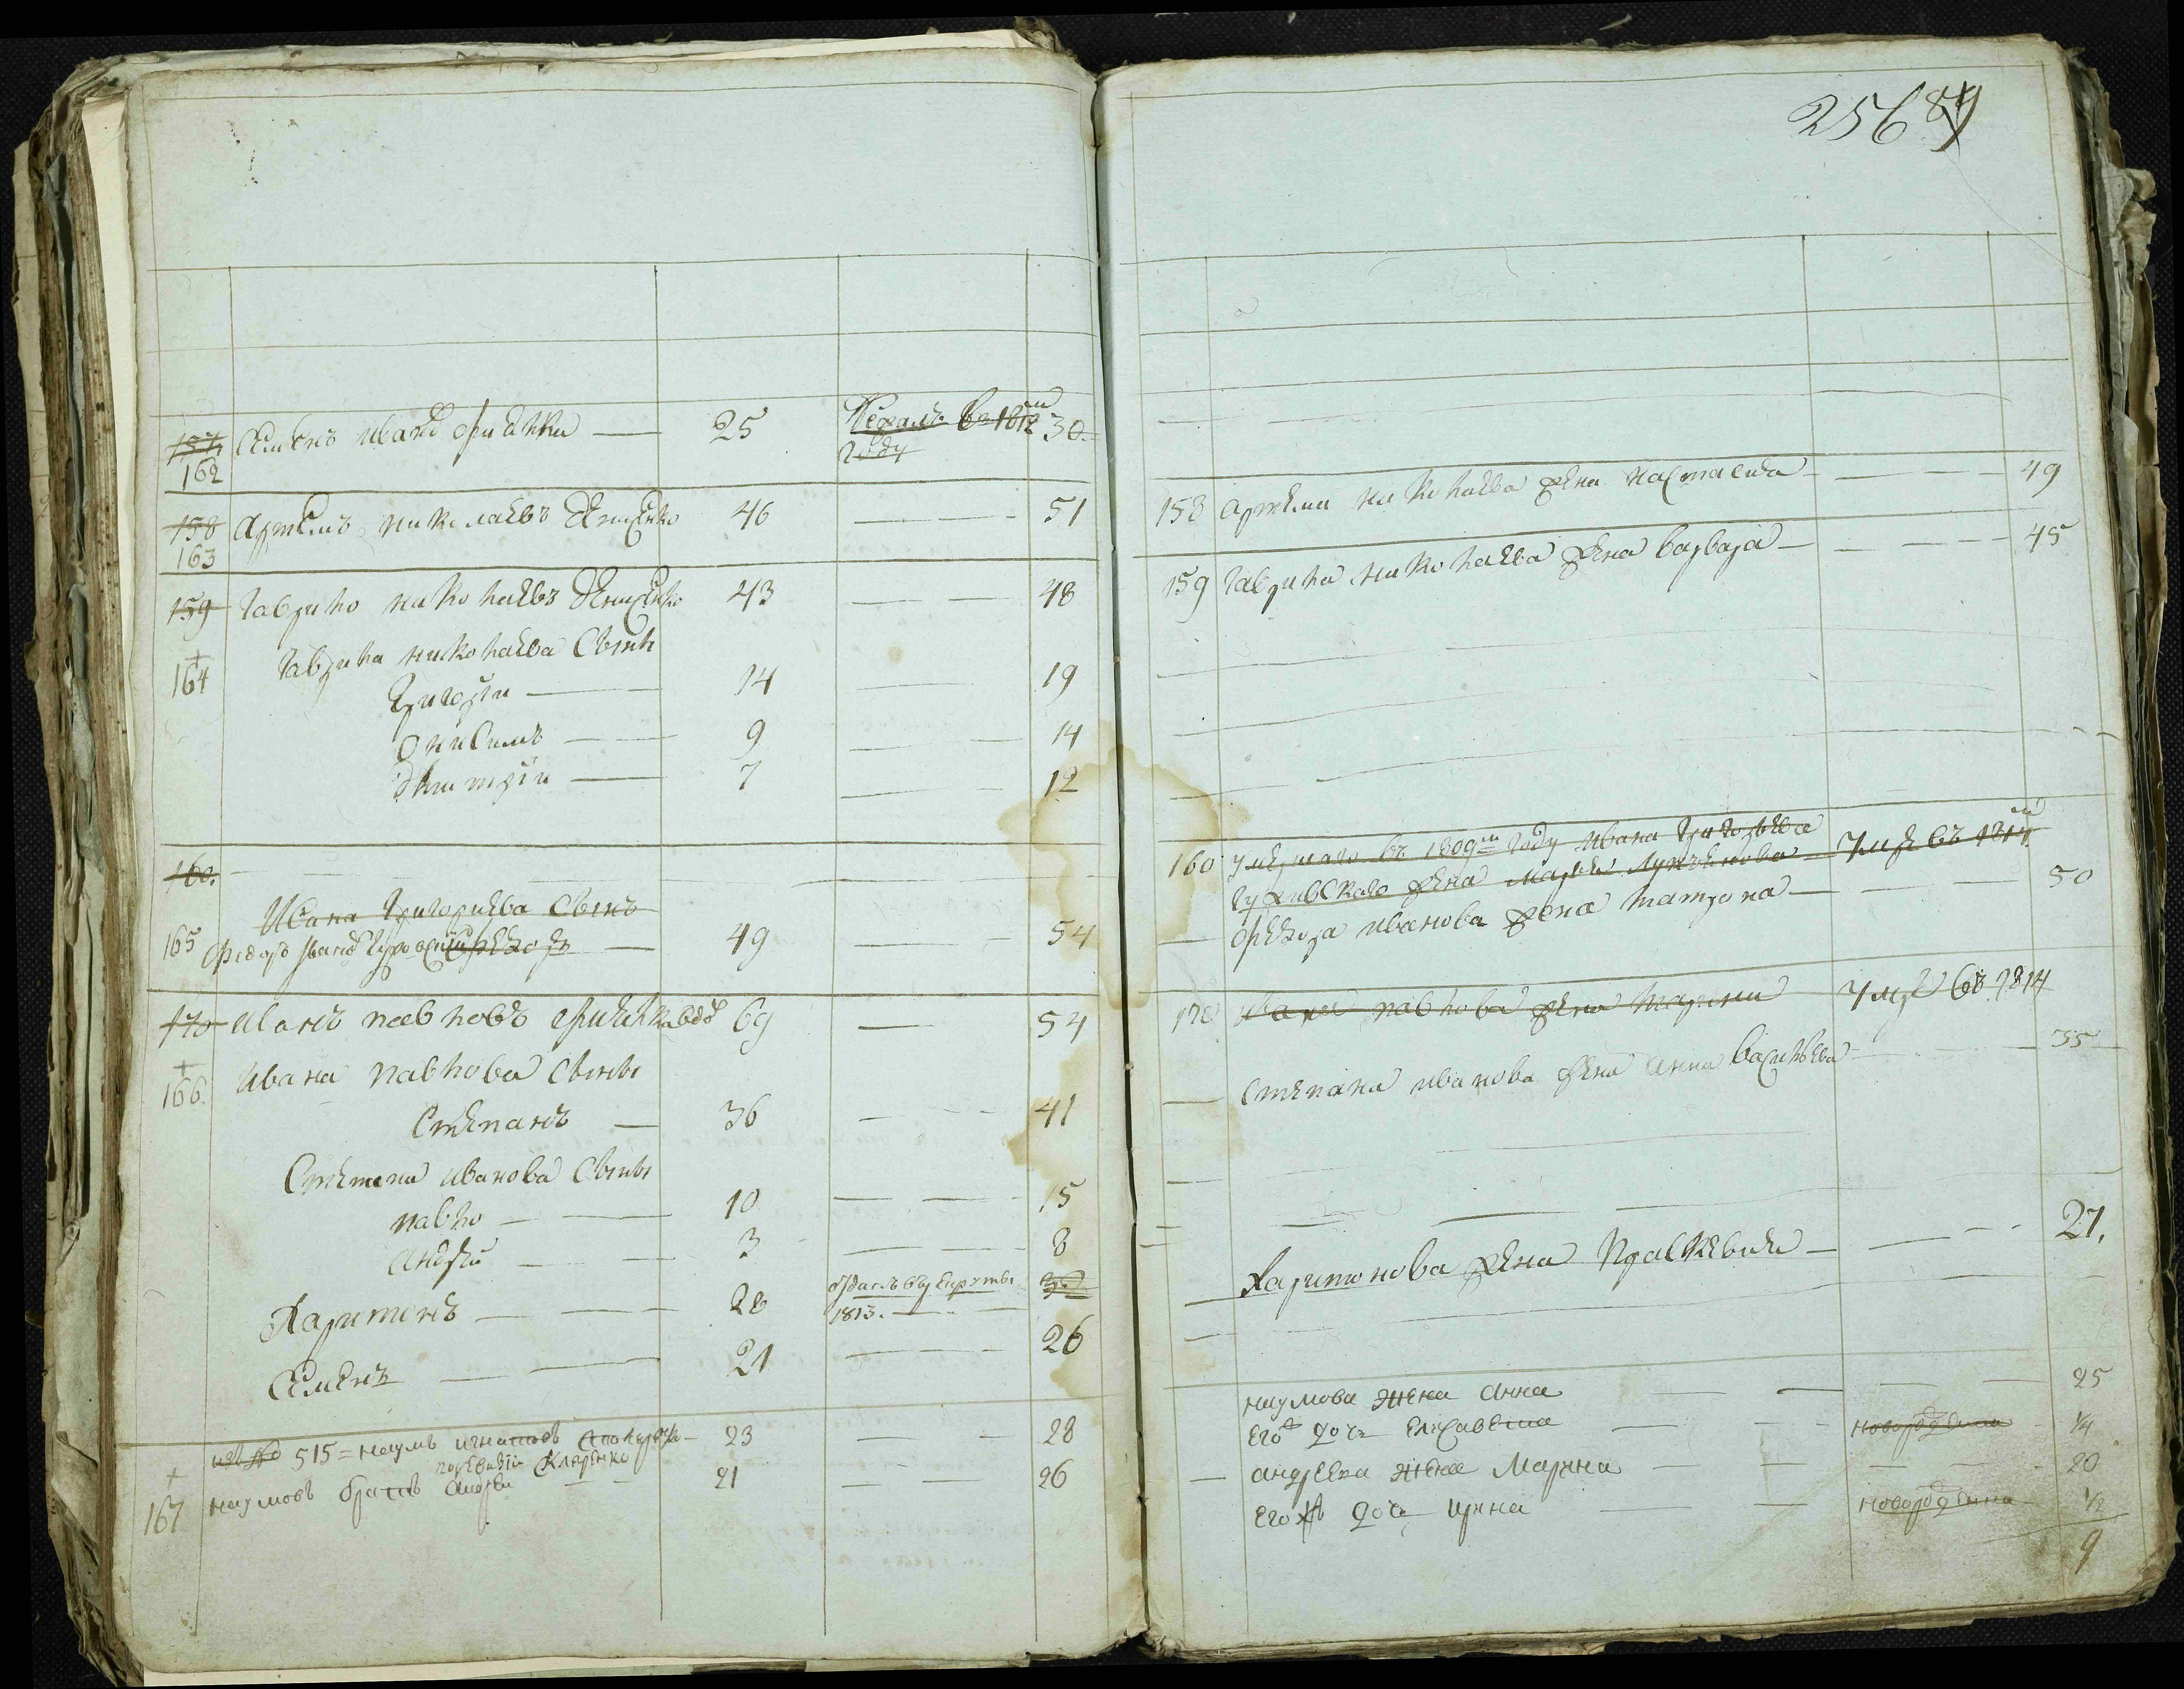 256 89
157
162
Семенъ Ивановъ
25
Бежалъ в 1812м
году
30
158
163
Артемъ Николаевъ Денисенко
46
51
159
Гаврило Николаевъ Денисенко
43
48
164
Гаврила Николаева Сынъ
Григории
14
19
Онисимъ
9
14
Дмитрїи
7
12
160.
Ивана Григориева Сынъ
165
Федоръ Иванов
49
54
170
Иванъ Павловъ
69
54
166
Ивана Павлова Сыны
Степанъ
36
41
Степана Иванова Сыны
Павло
10
15
Андрей
3
8
Харитонъ
28
отданъ въ рекруты
1813.
Семенъ
21
26
изъ № 515 = Наумъ Игнатовъ
23
28
167
Наумовъ братъ Андреи
21
26
158
Артема Николаева жена Настасия
49
159
Гаврила Николаева жена Варвара
45
160
умершаго въ 1809м году Ивана Григорьева
жена Марья
умре въ 1814м
Федора Иванова жена Матрона
50
170
Ивана Павлова жена Марина
умре въ 1814
Степана Иванова жена Анна Васильева
35
Харитонова жена Прасковия
27.
Наумова жена Анна
25
его дочь Елисавета
новорожденна
1/4
Андреева жена Марина
20
его жъ дочь Ирина
новорожденна
1/2
9